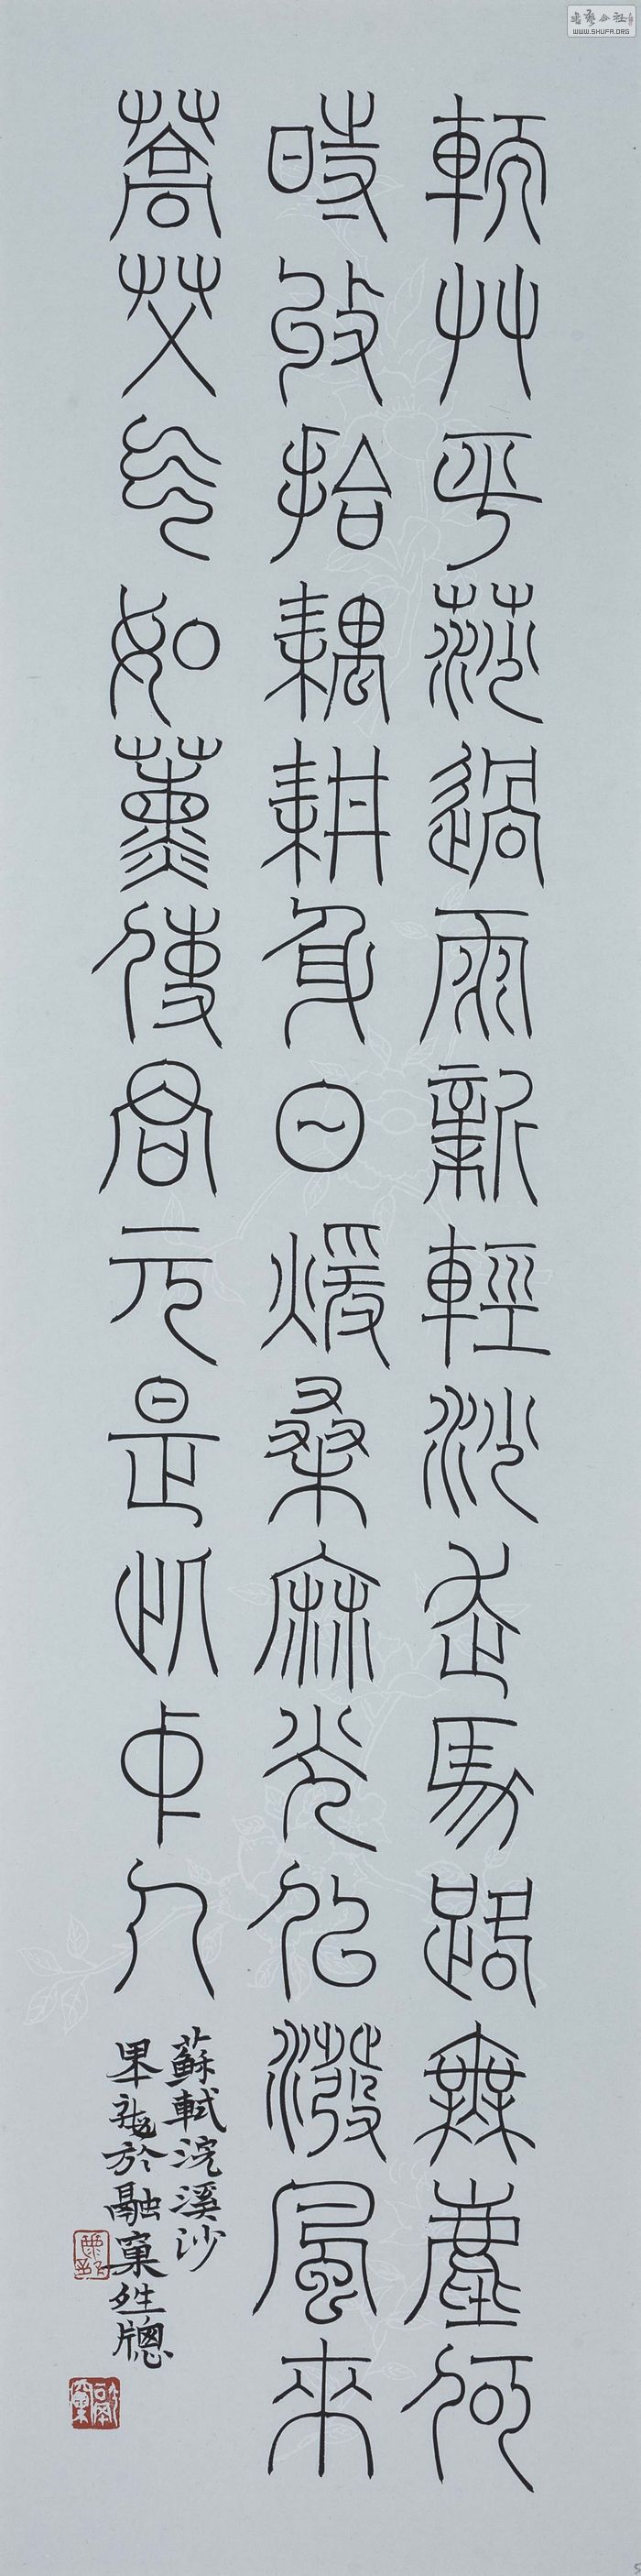 軟艸平莎過雨新輕沙走馬路無塵何
時收拾耦耕身日煖桑麻光似潑風來
蒿艾气如薰使君元是此中人
蘇軾浣溪沙
於融窠
WWW.SHUFA.ORG